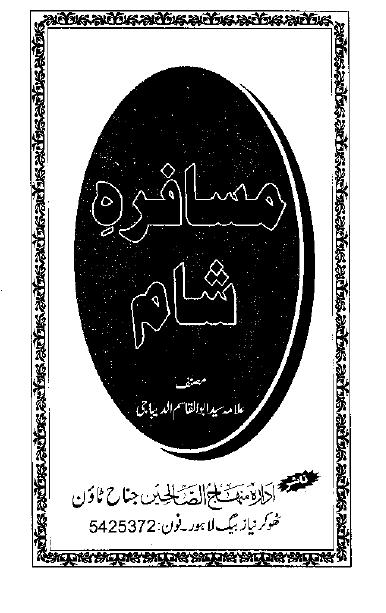 مسافرہِ
شام
مصنف
علامہ سید ابوالقاسم الدیباجی
ناشر
ادارہ منہاج الصالحین جناح ٹاؤن
ٹھوکر نیاز بیگ لاہور۔ فون: 5425372